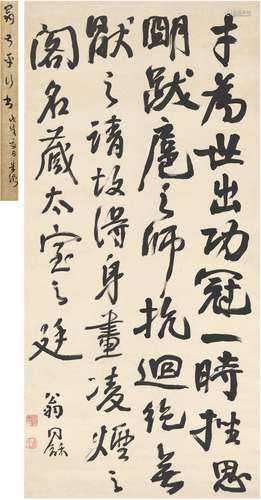 才為世出功冠一時挫思
明跋扈之師抗迴紇無
猒之請故得身畫凌煙之
閣名藏太室之廷
翁同龢
翁叔平行書